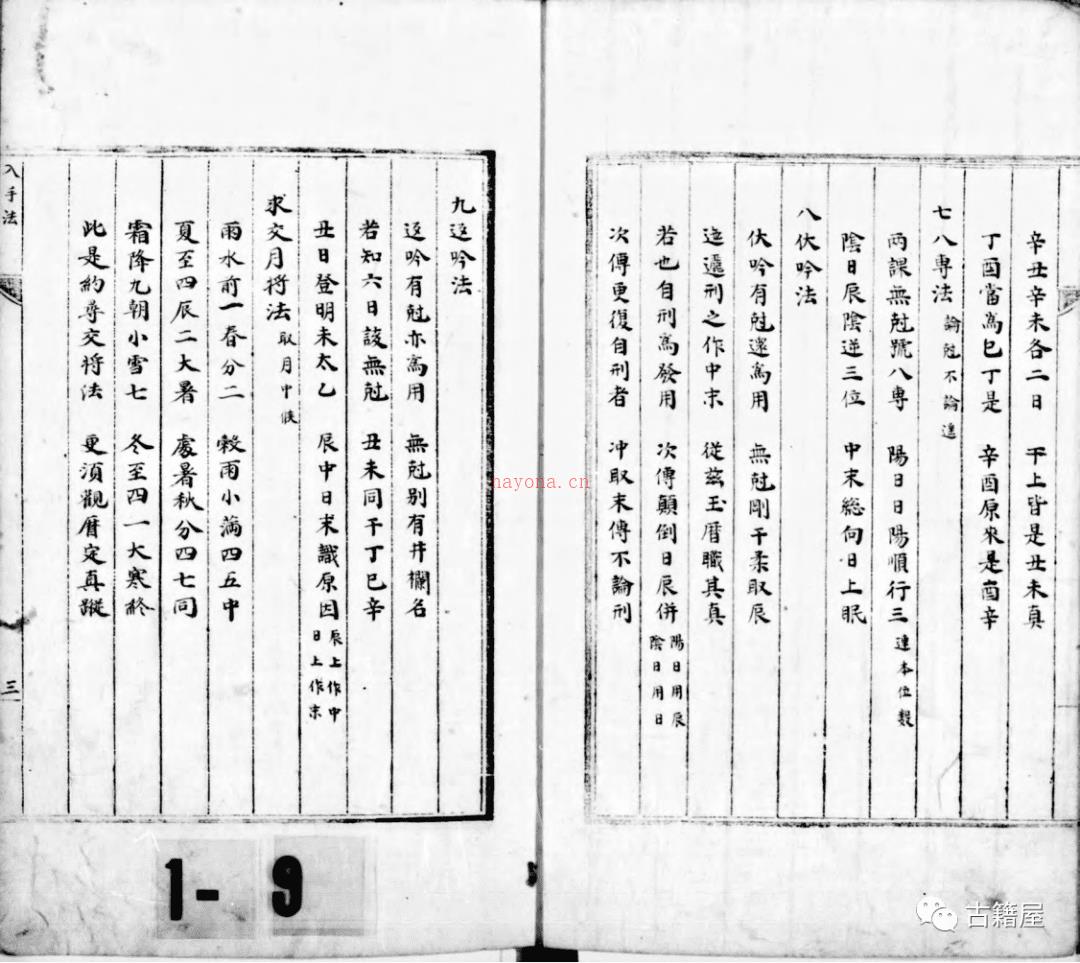 辛丑辛未各二日　干上皆是丑未真
丁酉當爲巳丁是　辛酉原來是酉辛
七八專法 論尅不論遙
兩課無尅號八專　陽日日陽順行三 連本位數
陰日辰陰逆三位　中末總向日上眠
八伏吟法
伏吟有尅還爲用　無尅剛干柔取辰
迤邐刑之作中末　從茲玉曆職其真
若也自刑爲發用　次傳顛倒日辰併 陽日用辰 陰日用日
次傳更復自刑者　冲取末傳不論刑
九返吟法
返吟有尅亦爲用　無尅别有井欄名
若知六日該無尅　丑未同干丁巳辛
丑日登明未太乙　辰中日末識原因 辰上作中 日上作末
求交月将法 取月中候
雨水前一春分二　穀雨小滿四五中
夏至四辰二大暑　處暑秋分四七同
霜降九朝小雪七　冬至四一大寒終
此是約尋交将法　更須觀曆定真蹤
入手法
三
1-9
hayona.cn
古籍屋